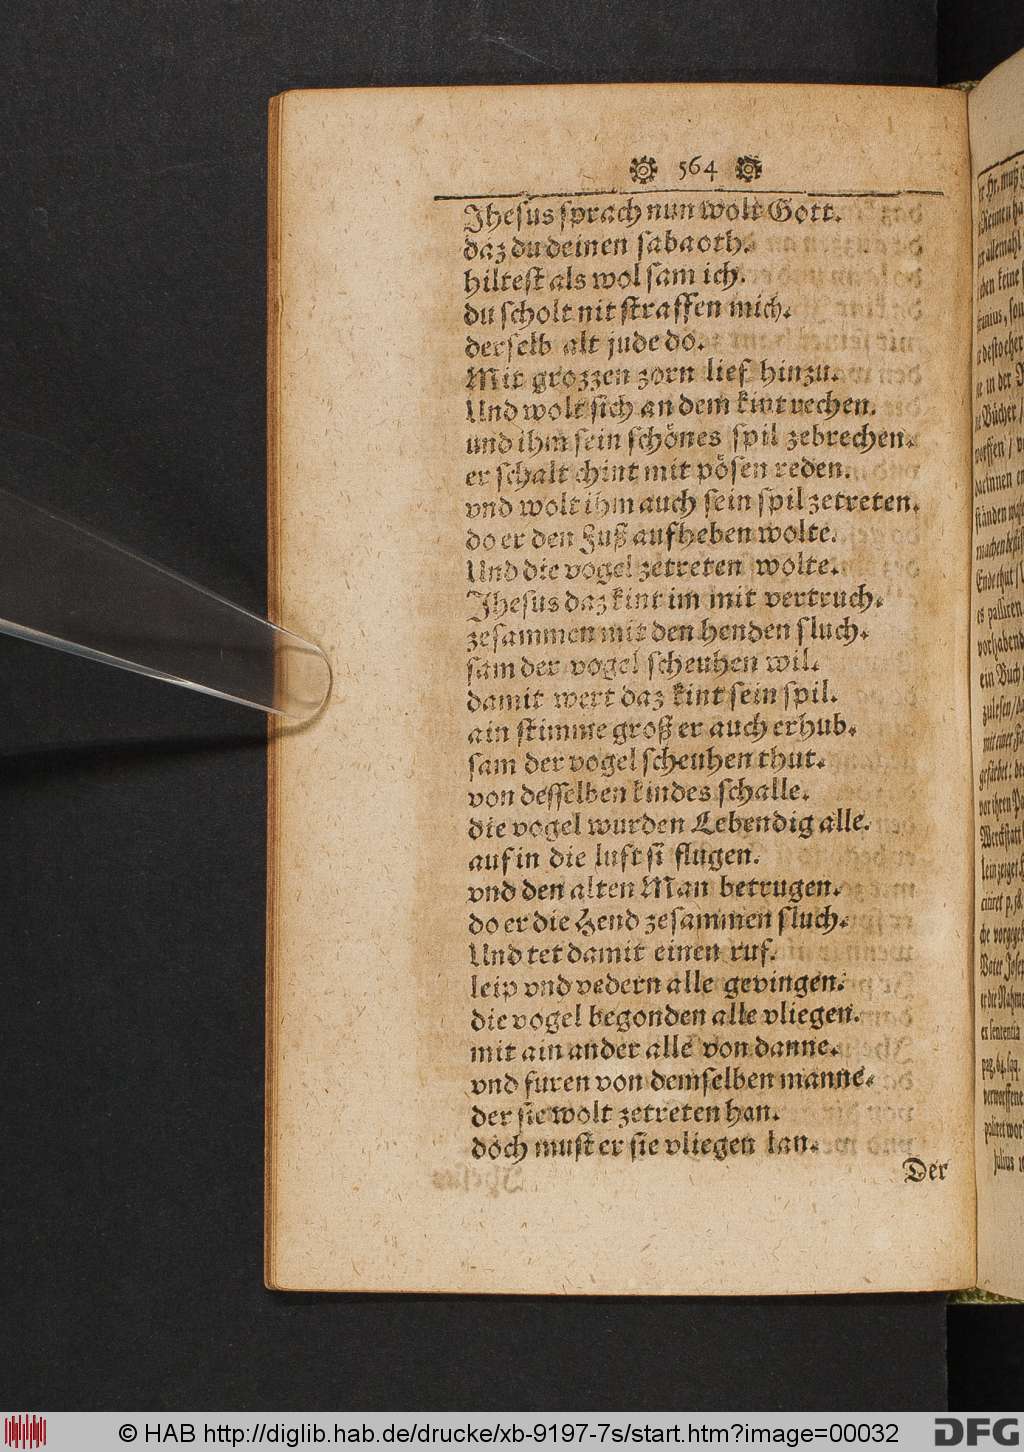 564
Jhesus sprach nun wolt Gott.
daz du deinen sabaoth.
hiltest als wol sam ich.
du scholt nit straffen mich.
derselb alt jude do.
Mit grozzen zorn lief hinzu.
Und wolt sich an dem kint rechen.
und ihm sein schönes spil zebrechen.
er schalt chint mit pösen reden.
vnd wolt ihm auch sein spil zetreten.
do er den Fuß aufheben wolte.
Und die vogel zetreten wolte.
Jhesus daz kint im mit vertruch.
zesammen mit den henden sluch.
sam der vogel scheuhen wil.
damit wert daz kint sein spil.
ain stimme groß er auch erhub.
sam der vogel scheuhen thut.
von desselben kindes schalle.
die vogel wurden Lebendig alle.
auf in die luft si flugen.
vnd den alten Man betrugen.
do er die Hend zesammen sluch.
Und tet damit einen ruf.
leip vnd vedern alle gevingen.
die vogel begonden alle vliegen.
mit ain ander alle von danne.
vnd furen von demselben manne.
der sie wolt zetreten han.
doch must er sie vliegen lan.
Der
© HAB http://diglib.hab.de/drucke/xb-9197-7s/start.htm?image=00032
DFG